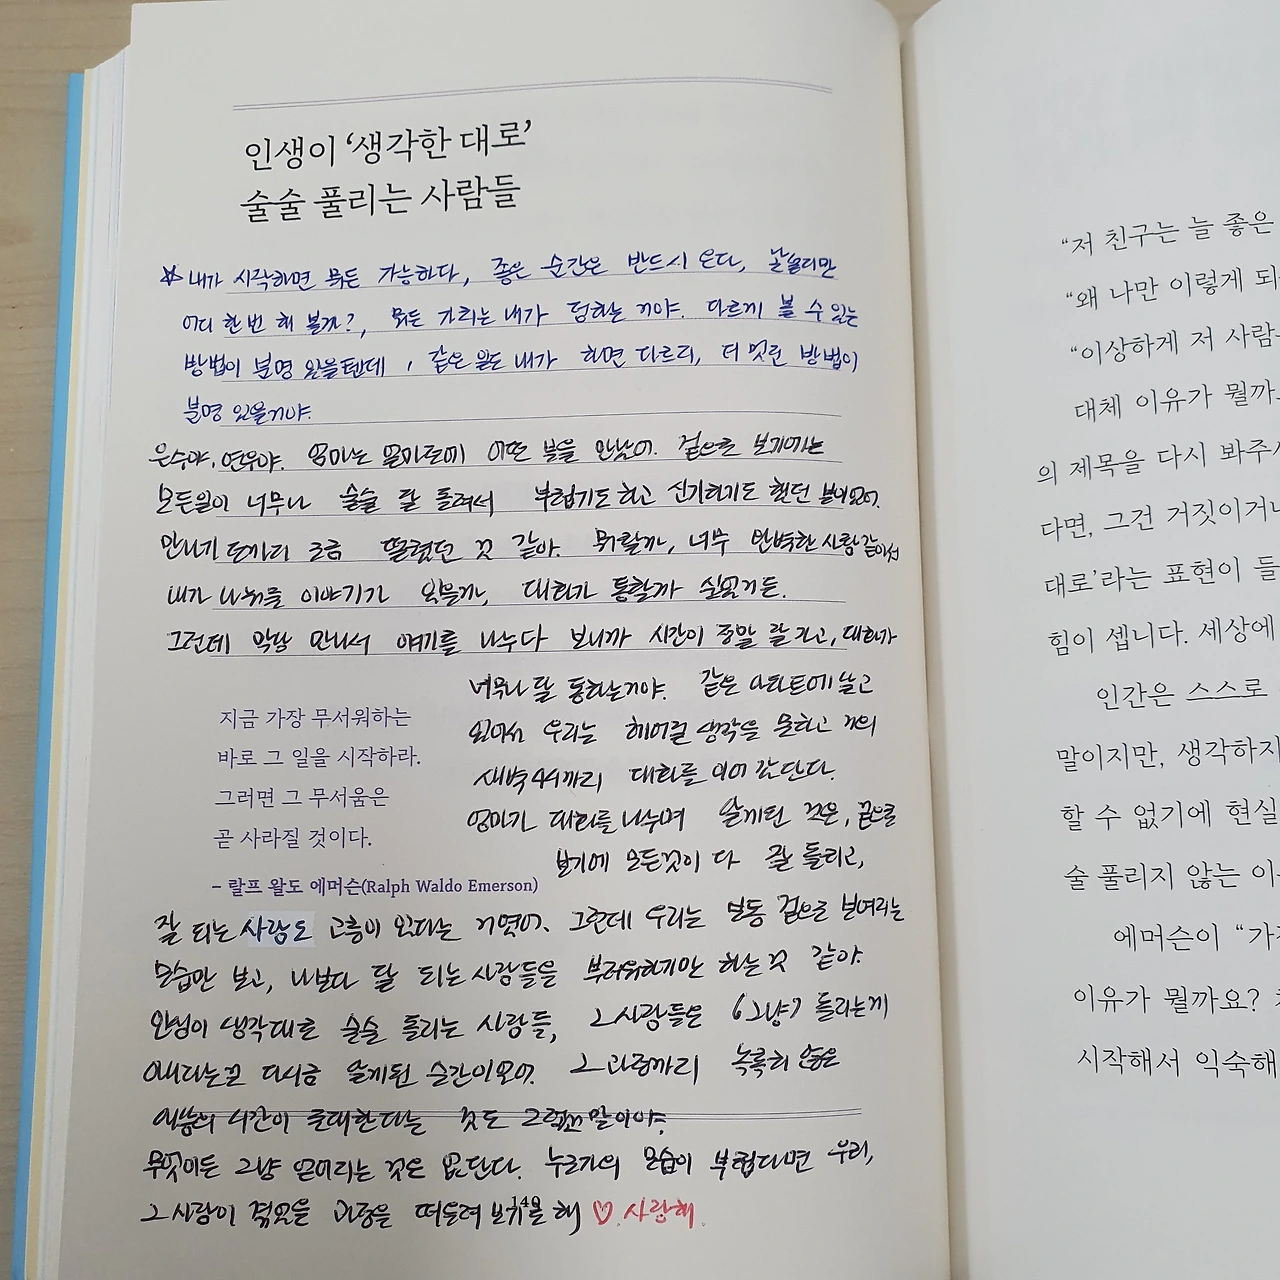 인생이 ‘생각한 대로’
술술 풀리는 사람들
내가 시작하면 뭐든 가능하다, 좋은 순간은 반드시 온다,
어디 한번 해 볼까?, 뭐든 가치는 내가 정하는 거야. 다르게 볼 수 있는
방법이 분명 있을텐데, 같은 일도 내가 하면 다르리, 더 멋진 방법이
분명 있을거야.
은수야, 연우야. 엄마는 얼마전에 어떤 분을 만났어. 겉으로 보기에는
모든일이 너무나 술술 잘 풀려서 부럽기도하고 신기하기도 했던 분이었어.
만나기 전까지 조금 떨렸던 것 같아. 뭐랄까, 너무 완벽한 사람같아서
내가 나눠줄 이야기가 있을까, 대화가 통할까 싶었거든.
그런데 막상 만나서 얘기를 나누다 보니까 시간이 정말 잘 가고, 대화가
너무나 잘 통하는거야. 같은 아파트에 살고
있어서 우리는 헤어질 생각을 못하고 거의
새벽 4시까지 대화를 이어 갔단다.
엄마가 대화를 나누며 알게된 것은, 겉으로
보기에 모든것이 다 잘 풀리고,
지금 가장 무서워하는
바로 그 일을 시작하라.
그러면 그 무서움은
곧 사라질 것이다.
– 랄프 왈도 에머슨(Ralph Waldo Emerson)
잘 되는 사람도 고충이 있다는 거였어. 그런데 우리는 보통 겉으로 보여지는
모습만 보고, 나보다 잘 되는 사람들을 부러워하기만 하는 것 같아.
인생이 생각대로 술술 풀리는 사람들, 그 사람들은 '그냥' 풀리는게
아니라는걸 다시금 알게된 순간이었어. 그 과정까지 녹록치 않은
시간이 존재한다는 것도 그렇고 말이야.
무엇이든 그냥 얻어지는 것은 없단다. 누군가의 모습이 부럽다면 우리,
그 사람이 겪었을 과정을 떠올려 보기로 해 ♡. 사랑해.
140
“저 친구는 늘 좋은
“왜 나만 이렇게
“이상하게 저 사람
대체 이유가 뭘까
의 제목을 다시 봐주
다면, 그건 거짓이거나
대로’라는 표현이
힘이 셉니다. 세상에
인간은 스스로
말이지만, 생각하지
할 수 없기에 현실
술 풀리지 않는
에머슨이
이유가 뭘까요?
시작해서 익숙해